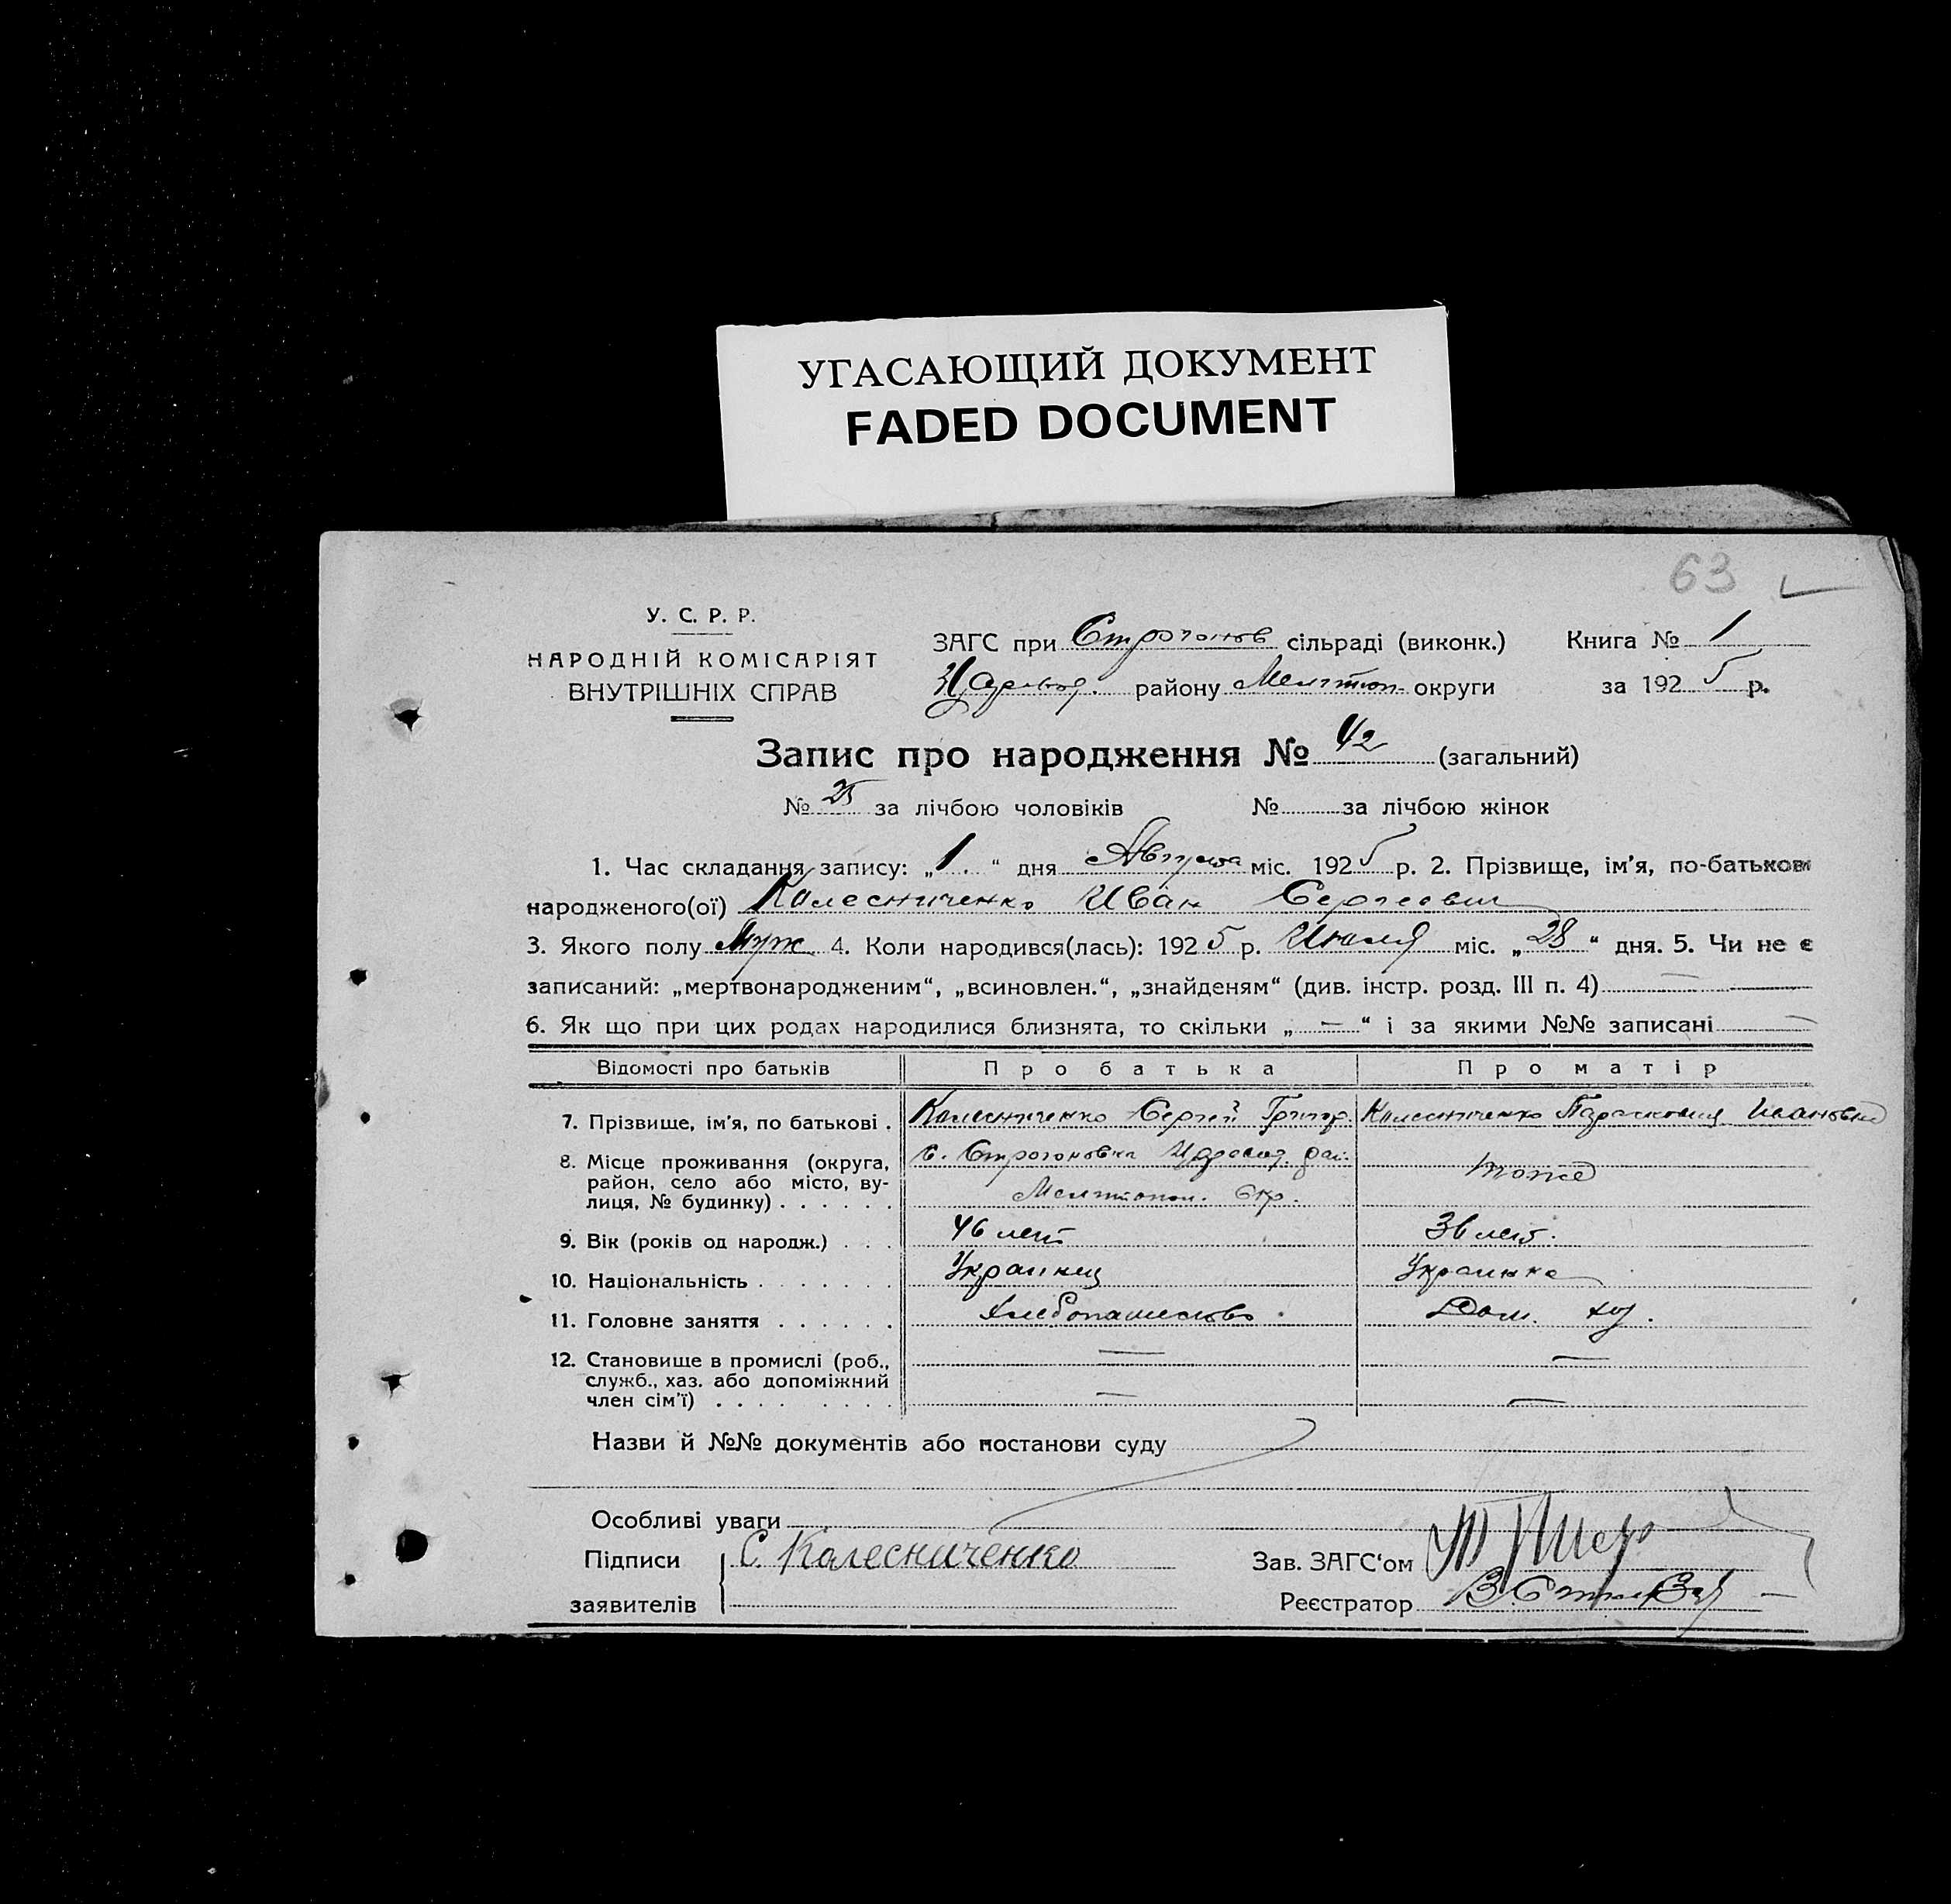 УГАСАЮЩИЙ ДОКУМЕНТ
FADED DOCUMENT
63
У. С. Р. Р.
НАРОДНІЙ КОМІСАРІЯТ
ВНУТРІШНІХ СПРАВ
ЗАГС при Строганов сільраді (виконк.) Книга № 1
району Мелітоп. округи за 1925 р.
Запис про народження № 42 (загальний)
№ 25 за лічбою чоловіків № за лічбою жінок
1. Час складання запису: „1." дня Августа міс. 1925 р. 2. Прізвище, ім'я, по-батькові
народженого(ої) Колесниченко Иван Сергеевич
3. Якого полу Муж. 4. Коли народився(лась): 1925 р. Июля міс. „28" дня. 5. Чи не є
записаний: „мертвонародженим", „всиновлен.", „знайденям" (див. інстр. розд. III п. 4) —
6. Як що при цих родах народилися близнята, то скільки „—" і за якими №№ записані —
Відомості про батьків Про батька Про матір
7. Прізвище, ім'я, по батькові . Колесниченко Сергей Григор. Колесниченко Парасковия Ивановна
8. Місце проживання (округа, с. Строгоновка
район, село або місто, ву- тоже
лиця, № будинку) . . . . . . Мелитопол. Окр.
9. Вік (років од народж.) . . . 46 лет 36 лет.
10. Національність . . . . . . . Украинец Украинка
11. Головне заняття . . . . . . Хлебопашество. Дом. хоз.
12. Становище в промислі (роб., — —
служб., хаз. або допоміжний
член сім'ї) . . . . . . . . . — —
Назви й №№ документів або постанови суду
Особливі уваги
Підписи С. Колесниченко Зав. ЗАГС'ом
заявителів Реєстратор